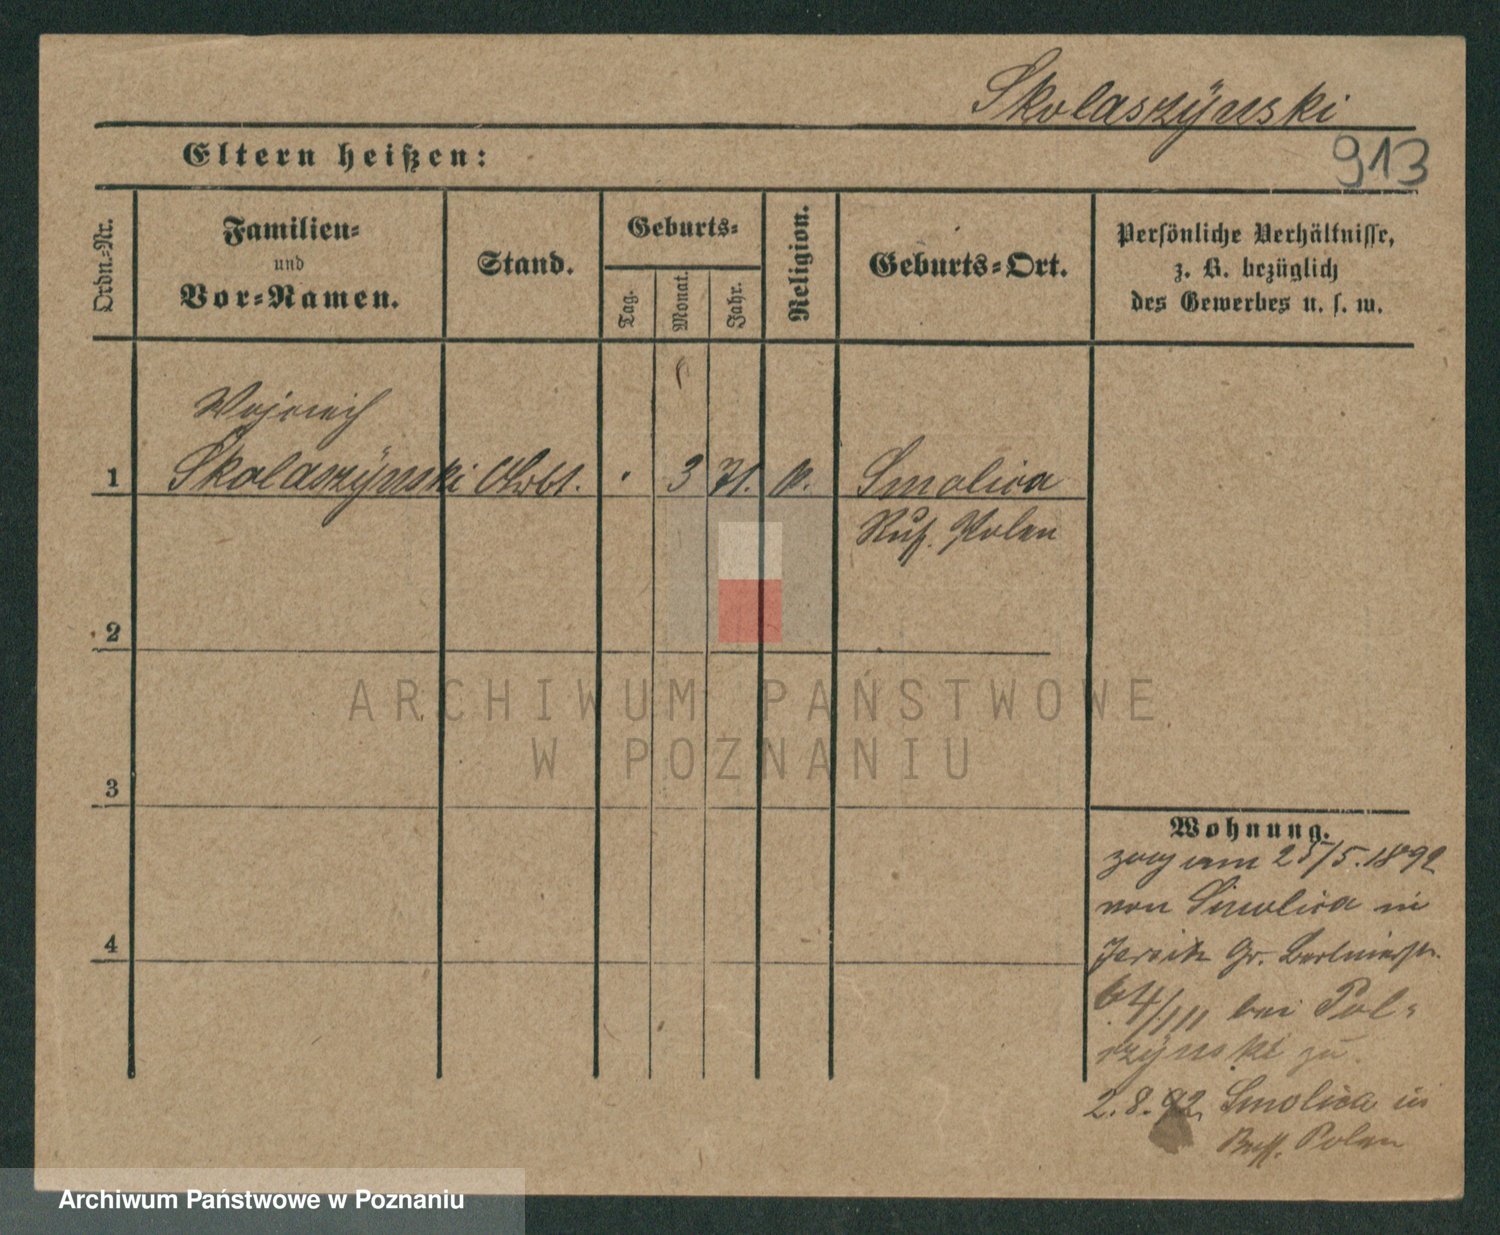 Skolaszÿnski
913
Eltern heißen:
Ordn.-Nr.
Familien-
und
Vor-Namen.
Stand.
Geburts-
Tag.
Monat.
Jahr.
Religion.
Geburts-Ort.
Persönliche Verhältnisse,
z. B. bezüglich
des Gewerbes u. s. w.
Wojciech
1 Skolaszÿnski Arbt. 3 71. Smolica
Russ. Polen
2
ARCHIWUM PAŃSTWOWE
W POZNANIU
3
Wohnung.
zog am 25/5. 1892
von Smolica in
4
Jersitz Gr. Berlinerstr.
64/III bei Pol-
czÿnski zu.
2.8.92. Smolica in
Russ. Polen
Archiwum Państwowe w Poznaniu